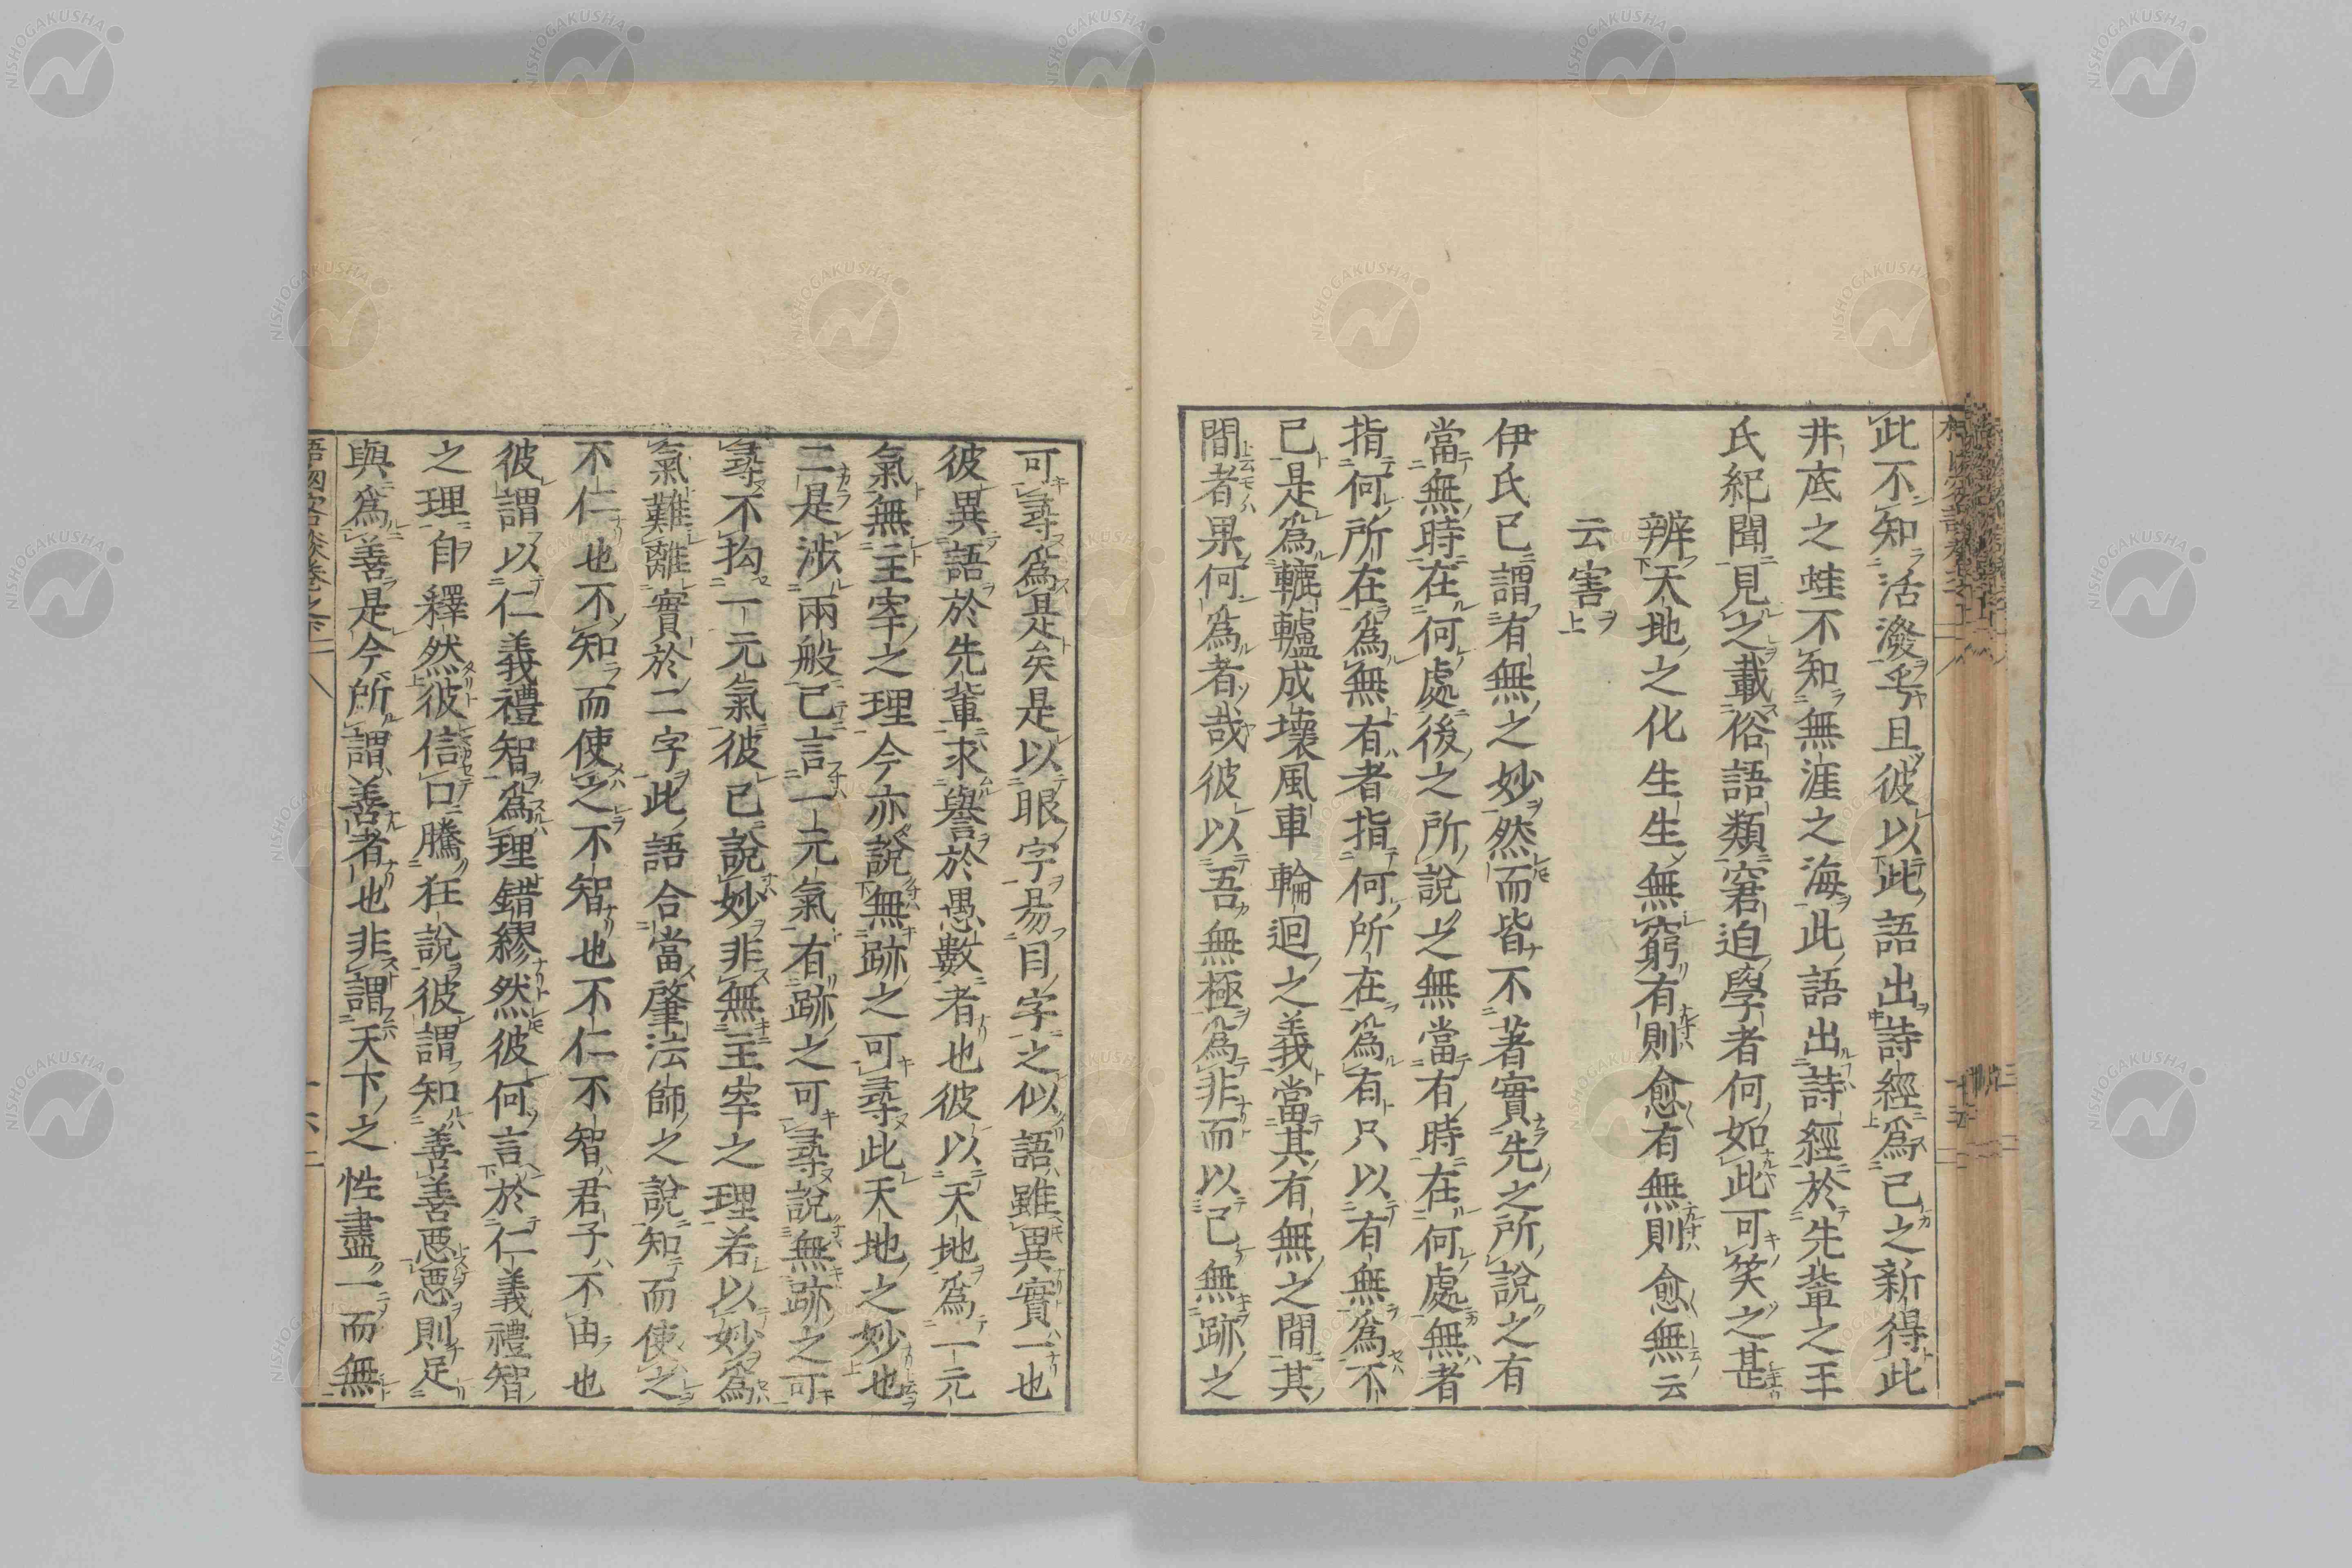 此不知活潑乎且彼以此語出詩經爲已之新得此
井底之蛙不知無涯之海此語出詩經於先輩之王
氏紀聞見之載俗語類窘迫學者何如此可笑之甚
辨天地之化生生無窮有則愈有無則愈無云
云害
伊氏已謂有無之妙然而皆不著實先之所說之有
當無時在何處後之所說之無當有時在何處無者
指何所在爲無有者指何所在爲有只以有無爲不
已是爲轆轤成壞風車輪迴之義當其有無之間其
間者果何爲者哉彼以吾無極爲非而以已無跡之
可尋爲是矣是以眼字易目字之似語雖異實一也
彼異語於先輩求譽於愚數者也彼以天地爲一元
氣無主宰之理今亦說無跡之可尋此天地之妙也
二是涉兩般已言一元氣有跡之可尋說無跡之可
尋不拘一元氣彼已說妙非無主宰之理若以妙爲
氣難離實於二字此語合當肇法師之說知而使之
不仁也不知而使之不智也不仁不智君子不由也
彼謂以仁義禮智爲理錯繆然彼何言於仁義禮智
之理自釋然彼信口騰狂說彼謂知善善惡惡則足
與爲善是今所謂善者也非謂天下之性盡一而無
NISHOGAKUSHA